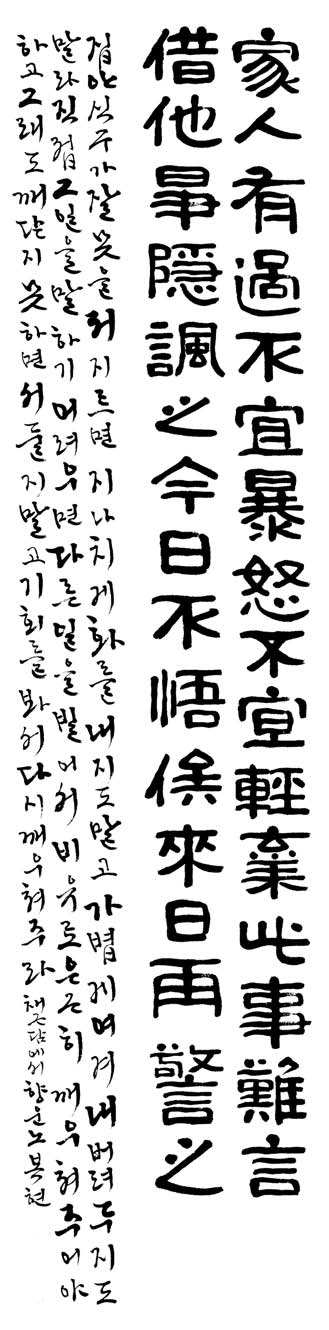 家人有過不宜暴怒不宜輕棄此事難言
借他事隱諷之今日不悟俟來日再警之
집안식구가 잘못을 저지르면 지나치게 화를 내지도 말고 가볍게 여겨 내버려두지도
말라 직접 그 일을 말하기 어려우면 다른 일을 빌어서 비유로 은근히 깨우쳐주어야
하고 그래도 깨닫지 못하면 서둘지 말고 기회를 봐서 다시 깨우쳐주라 채근담에서 향운 노복현